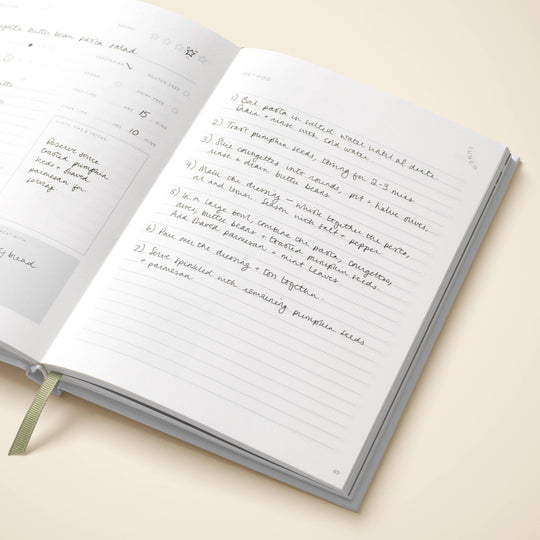 RATING
courgette butter bean pasta salad
VEGETARIAN
GLUTEN-FREE
VEGAN
DAIRY-FREE
HRS 15 MINS
COOK TIME HRS 10 MINS
NOTES, TIPS & TRICKS
Reserve some
toasted pumpkin
seeds + shaved
parmesan for
serving
WITH
bread
METHOD
LUNCH
1) Boil pasta in salted water until al dente.
Drain + rinse with cold water.
2) Toast pumpkin seeds, tossing for 2-3 mins
3) Slice courgettes into rounds, pit + halve olives,
rinse + drain butter beans
4) Make the dressing – whisk together the pesto,
oil and lemon. Season with salt + pepper.
5) In a large bowl, combine the pasta, courgettes,
olives, butter beans + toasted pumpkin seeds.
Add shaved parmesan + mint leaves.
6) Pour over the dressing + toss together.
7) Serve sprinkled with remaining pumpkin seeds
+ parmesan